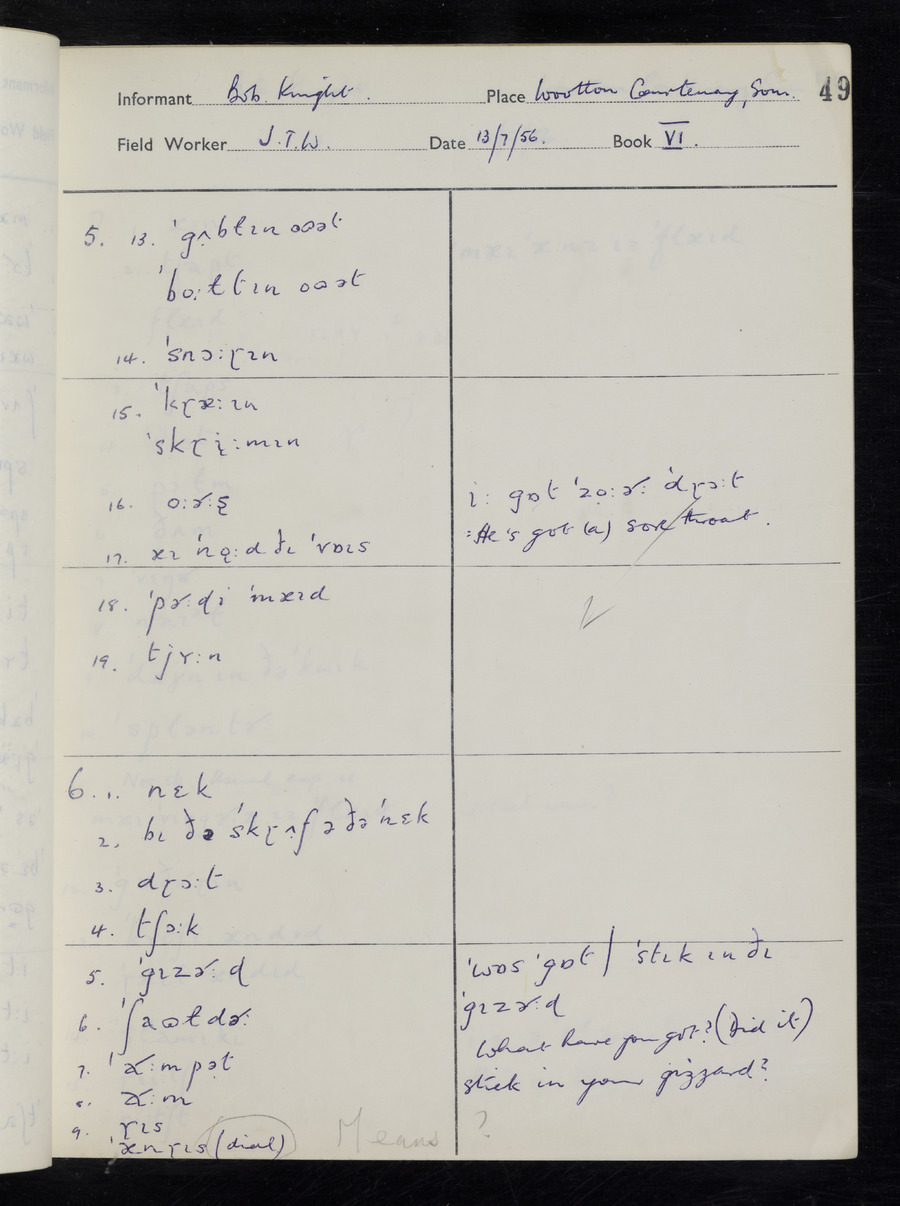 Informant Bob Knight. Place Wootton Courtenay, Som. 49
Field Worker J.T.W. Date 13/7/56. Book VI.
5. 13. ˈgʌbɫɪn ɷət
ˈbo:ɫɫɪn ɷət
14. ˈsnɔ:ɽɪn
15. ˈkɽæ:ɪn
ˈskɽi̞:mɪn
16. o:ɚ:ʂ
i: gɒt ˈzo̞:ɚ: ˈdɽɔ:t
17. æɪ ˈno̞:d ðɪ ˈvɒɪs
=He's got (a) sore throat.
18. ˈpɚ:ɖi ˈmæɪd
19. tjʏ:n
6. 1. nɛk
2. bɪ ðə ˈskɽʌf ə ðə ˈnɛk
3. dɽɔ:t
4. tʃɔ:k
5. ˈgɪzɚ:d
ˈwɒs ˈgɒt | ˈstɪk ɪn ðɪ
ˈgɪzɚ:d
6. ˈʃaɷɫdɚ:
What have you got? (Did it)
7. ˈɑ˞:mpət
stick in your gizzard?
8. ɑ˞:m
9. ɽɪs
ˈænɽɪs (dial) Means ?